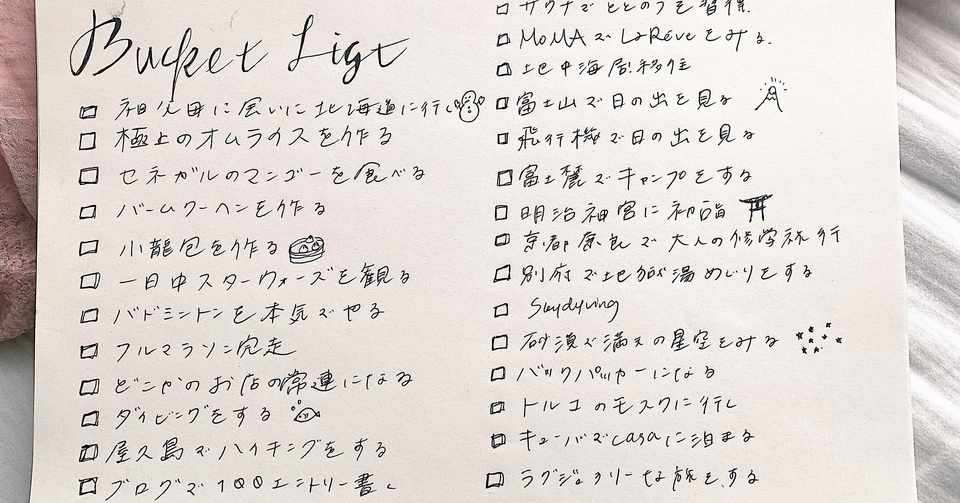 Bucket List
祖父母に会いに北海道に行く
極上のオムライスを作る
セネガルのマンゴーを食べる
バームクーヘンを作る
小龍包を作る
一日中スターウォーズを観る
バドミントンを本気でやる
フルマラソン完走
どこかのお店の常連になる
ダイビングをする
屋久島でハイキングをする
ブログで100エントリー書く
サウナでととのうを習得
MoMAでLa Rêveをみる
地中海周移住
富士山で日の出を見る
飛行機で日の出を見る
富士麓でキャンプをする
明治神宮に初詣
京都奈良で大人の修学旅行
別府で地獄湯めぐりをする
Skydiving
砂漠で満天の星空をみる
バックパッカーになる
トルコのモスクに行く
キューバでcasaに泊まる
ラグジュアリーな旅をする